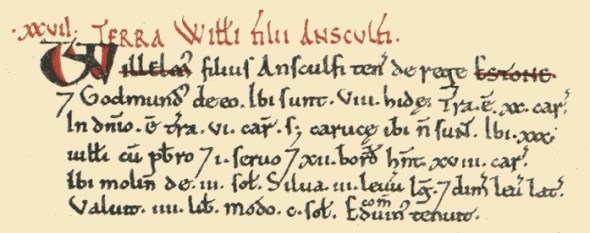 .XXVII. TERRA Willi filii Ansculfi.
Willelm' filius Ansculfi ten' de rege ESTONE
7 Godmund' de eo. Ibi sunt .VIII. hidę. Tra .ē. xx. car'.
In dnio .ē tra .vi. car'. s; carucę ibi ñ sunt. Ibi .xxx.
uilli cū pbro 7 i. seruo 7 xii. bord' hnt .xviii. car'.
Ibi molin' de .iii. sol'. Silua .iii. leuu lg'. 7 dim' leu' lat'.
Valuit .iiii. lib'. modo .c. sol'. Eduin' com' tenuit.